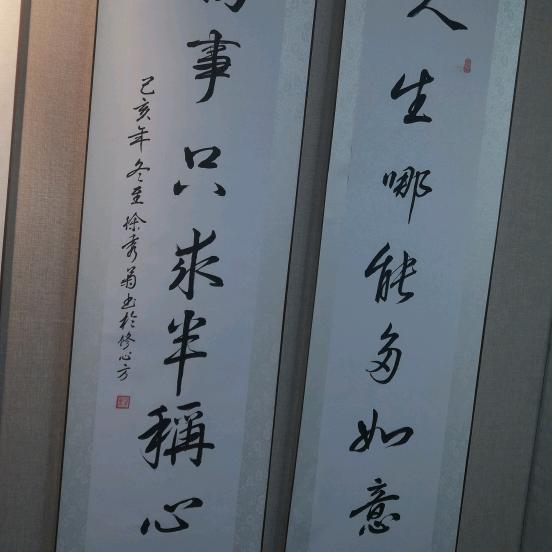 人生哪能多如意
事只求半稱心
己亥年冬至徐秀菊书於修心方